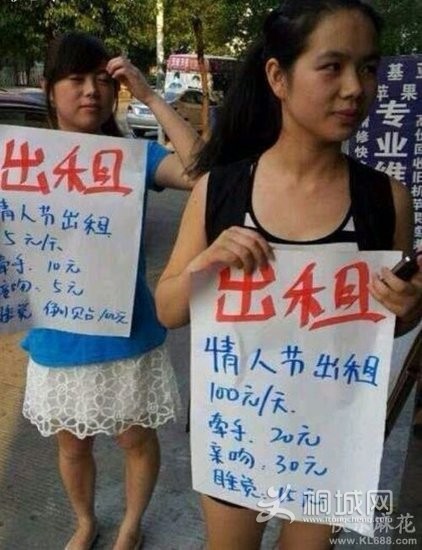 出租
情人节出租
5元/天
牵手：10元
亲吻：5元
睡觉 倒贴100元
出租
情人节出租
100元/天.
牵手．20元
亲吻：30元
睡觉：15元
苹果
专业维
桐城网
www.KL688.com